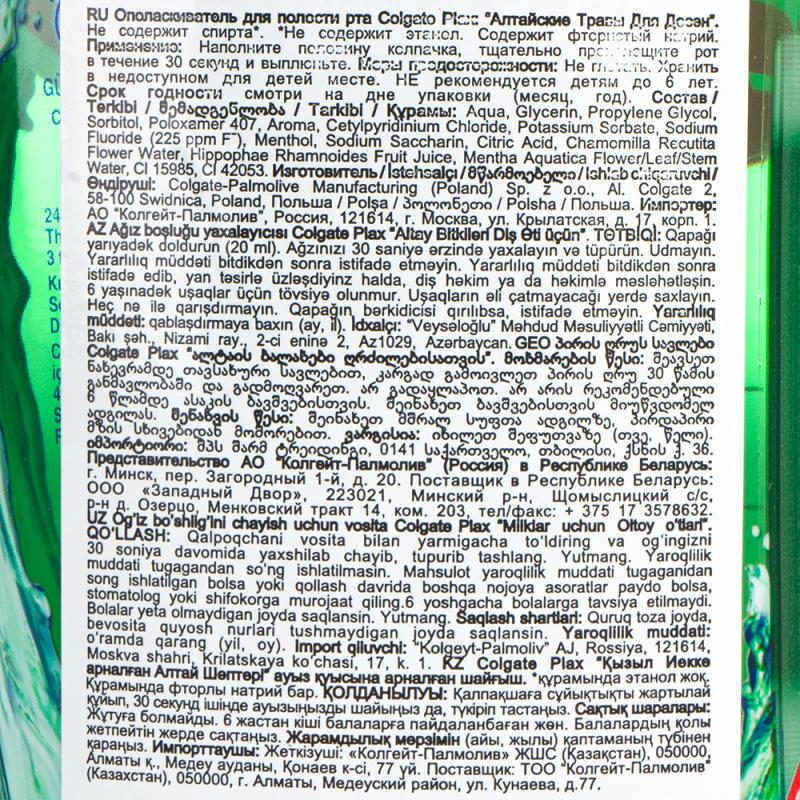 RU Ополаскиватель для полости рта Colgate Plax "Алтайские Травы Для Десен".
Не содержит спирта*. *Не содержит этанол. Содержит фтористый натрий.
Применению: Наполните половину колпачка, тщательно прополощите рот
в течение 30 секунд и выплюньте. Меры предосторожности: Не глотать. Хранить
в недоступном для детей месте. НЕ рекомендуется детям до 6 лет.
Срок годности смотри на дне упаковки (месяц, год). Состав /
Terkibi / შემადგენლობა / Tarkibi / Құрамы: Aqua, Glycerin, Propylene Glycol,
Sorbitol, Poloxamer 407, Aroma, Cetylpyridinium Chloride, Potassium Sorbate, Sodium
Fluoride (225 ppm F⁻), Menthol, Sodium Saccharin, Citric Acid, Chamomilla Recutita
Flower Water, Hippophae Rhamnoides Fruit Juice, Mentha Aquatica Flower/Leaf/Stem
Water, CI 15985, CI 42053. Изготовитель / İstehsalçı / მწარმოებელი / Ishlab chiqaruvchi /
Өндіруші: Colgate-Palmolive Manufacturing (Poland) Sp. z o.o., Al. Colgate 2,
58-100 Swidnica, Poland, Польша / Polşa / პოლონეთი / Polsha / Польша. Импортер:
АО "Колгейт-Палмолив", Россия, 121614, г. Москва, ул. Крылатская, д. 17, корп. 1.
AZ Ağız boşluğu yaxalayıcısı Colgate Plax "Altay Bitkiləri Diş Əti üçün". TƏTBİQİ: Qapağı
yarıyadək doldurun (20 ml). Ağzınızı 30 saniyə ərzində yaxalayın və tüpürün. Udmayın.
Yararlılıq müddəti bitdikdən sonra istifadə etməyin. Yararlılıq müddəti bitdikdən sonra
istifadə edib, yan təsirlə üzləşdiyiniz halda, diş həkim ya da həkimlə məsləhətləşin.
6 yaşınadək uşaqlar üçün tövsiyə olunmur. Uşaqların əli çatmayacağı yerdə saxlayın.
Heç nə ilə qarışdırmayın. Qapağın bərkidicisi qırılıbsa, istifadə etməyin. Yararlılıq
müddəti: qablaşdırmaya baxın (ay, il). İdxalçı: "Veyseloğlu" Məhdud Məsuliyyətli Cəmiyyəti,
Bakı şəh., Nizami ray., 2-ci eninə 2, Az1029, Azərbaycan. GEO პირის ღრუს სავლები
Colgate Plax "ალტაის ბალახები ღრძილებისათვის". მოხმარების წესი: შეავსეთ
ნახევრამდე თავსახური სავლებით, კარგად გამოივლეთ პირის ღრუ 30 წამის
განმავლობაში და გადმოღვარეთ. არ გადაყლაპოთ. არ არის რეკომენდებული
6 წლამდე ასაკის ბავშვებისთვის. შეინახეთ ბავშვებისთვის მიუწვდომელ
ადგილას. შენახვის წესი: შეინახეთ მშრალ სუფთა ადგილზე, პირდაპირი
მზის სხივებიდან მოშორებით. ვარგისია: იხილეთ შეფუთვაზე (თვე, წელი).
იმპორტიორი: შპს შარმ ტრეიდინგი, 0141 საქართველო, თბილისი, ქსნის ქ. 36.
Представительство АО "Колгейт-Палмолив" (Россия) в Республике Беларусь:
г. Минск, пер. Загородный 1-й, д. 20. Поставщик в Республике Беларусь:
ООО «Западный Двор», 223021, Минский р-н, Щомыслицкий с/с,
р-н д. Озерцо, Менковский тракт 14, ком. 203, тел/факс: + 375 17 3578632.
UZ Og'iz bo'shlig'ini chayish uchun vosita Colgate Plax "Milklar uchun Oltoy o'tlari".
QO'LLASH: Qalpoqchani vosita bilan yarmigacha to'ldiring va og'ingizni
30 soniya davomida yaxshilab chayib, tupurib tashlang. Yutmang. Yaroqlilik
muddati tugagandan so'ng ishlatilmasin. Mahsulot yaroqlilik muddati tugaganidan
song ishlatilgan bolsa yoki qollash davrida boshqa nojoya asoratlar paydo bolsa,
stomatolog yoki shifokorga murojaat qiling.6 yoshgacha bolalarga tavsiya etilmaydi.
Bolalar yeta olmaydigan joyda saqlansin. Yutmang. Saqlash shartlari: Quruq toza joyda,
bevosita quyosh nurlari tushmaydigan joyda saqlansin. Yaroqlilik muddati:
o'ramda qarang (yil, oy). Import qiluvchi: "Kolgeyt-Palmoliv" AJ, Rossiya, 121614,
Moskva shahri, Krilatskaya ko'chasi, 17, k. 1. KZ Colgate Plax "Қызыл Иекке
арналған Алтай Шөптері" ауыз қуысына арналған шайғыш. *құрамында этанол жоқ.
Құрамында фторлы натрий бар. ҚОЛДАНЫЛУЫ: Қалпақшаға сұйықтықты жартылай
құйып, 30 секунд ішінде ауызыңызды шайыңыз да, түкіріп тастаңыз. Сақтық шаралары:
Жұтуға болмайды. 6 жастан кіші балаларға пайдаланбаған жөн. Балалардың қолы
жетпейтін жерде сақтаңыз. Жарамдылық мерзімін (айы, жылы) қаптаманың түбінен
қараңыз. Импорттаушы: Жеткізуші: «Колгейт-Палмолив» ЖШС (Қазақстан), 050000,
Алматы қ., Медеу ауданы, Қонаев к-сі, 77 үй. Поставщик: ТОО "Колгейт-Палмолив"
(Казахстан), 050000, г. Алматы, Медеуский район, ул. Кунаева, д.77.